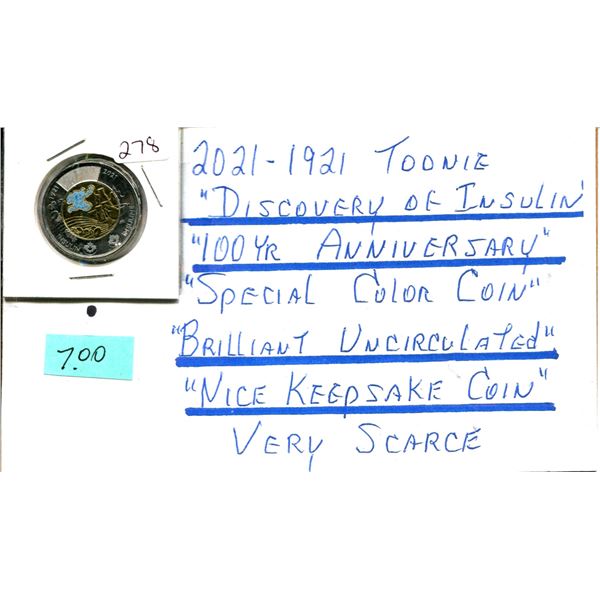 278
2021-1921 TOONIE
"DISCOVERY OF INSULIN'
"100 YR ANNIVERSARY"
"SPECIAL COLOR COIN"
"BRILLIANT UNCIRCULATED"
"NICE KEEPSAKE COIN"
VERY SCARCE
7.00
1921
2021
INSULIN
INSULINE